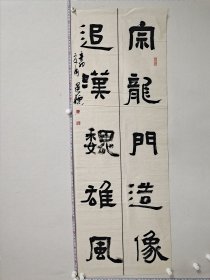 宗龍門造像
追漢魏雄風